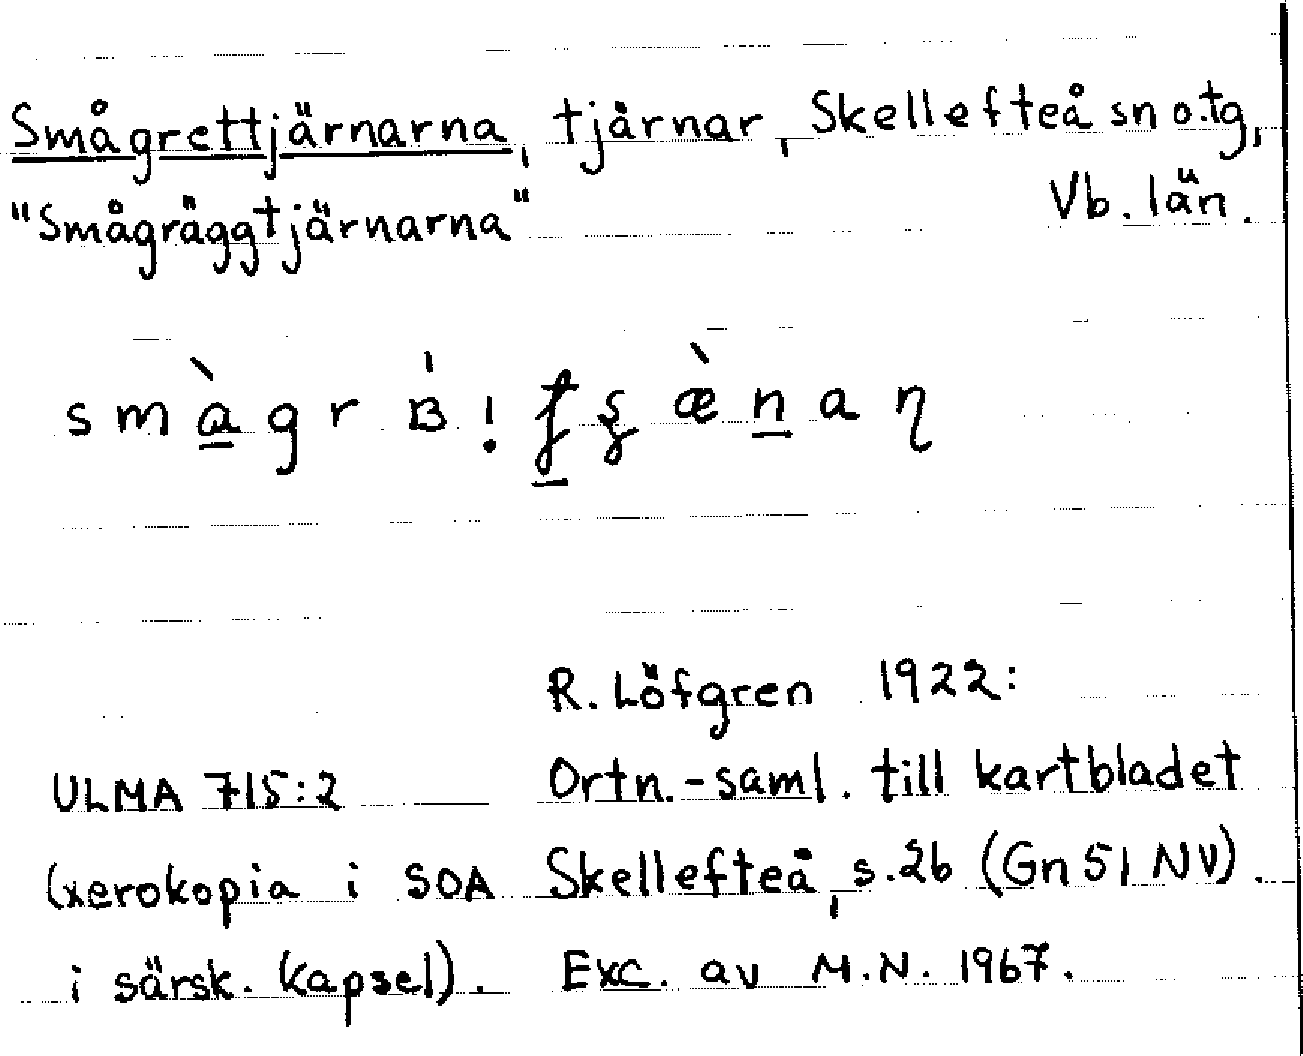 Smågrettjärnarna, tjärnar, Skellefteå sn o.tg,
"Smågräggtjärnarna" Vb. län.
R. Löfgren 1922:
ULMA 715:2 Ortn.-saml. till kartbladet
(xerokopia i SOA Skellefteå, s.26 (Gn 51 NV).
i särsk. kapsel). Exc. av M.N. 1967.